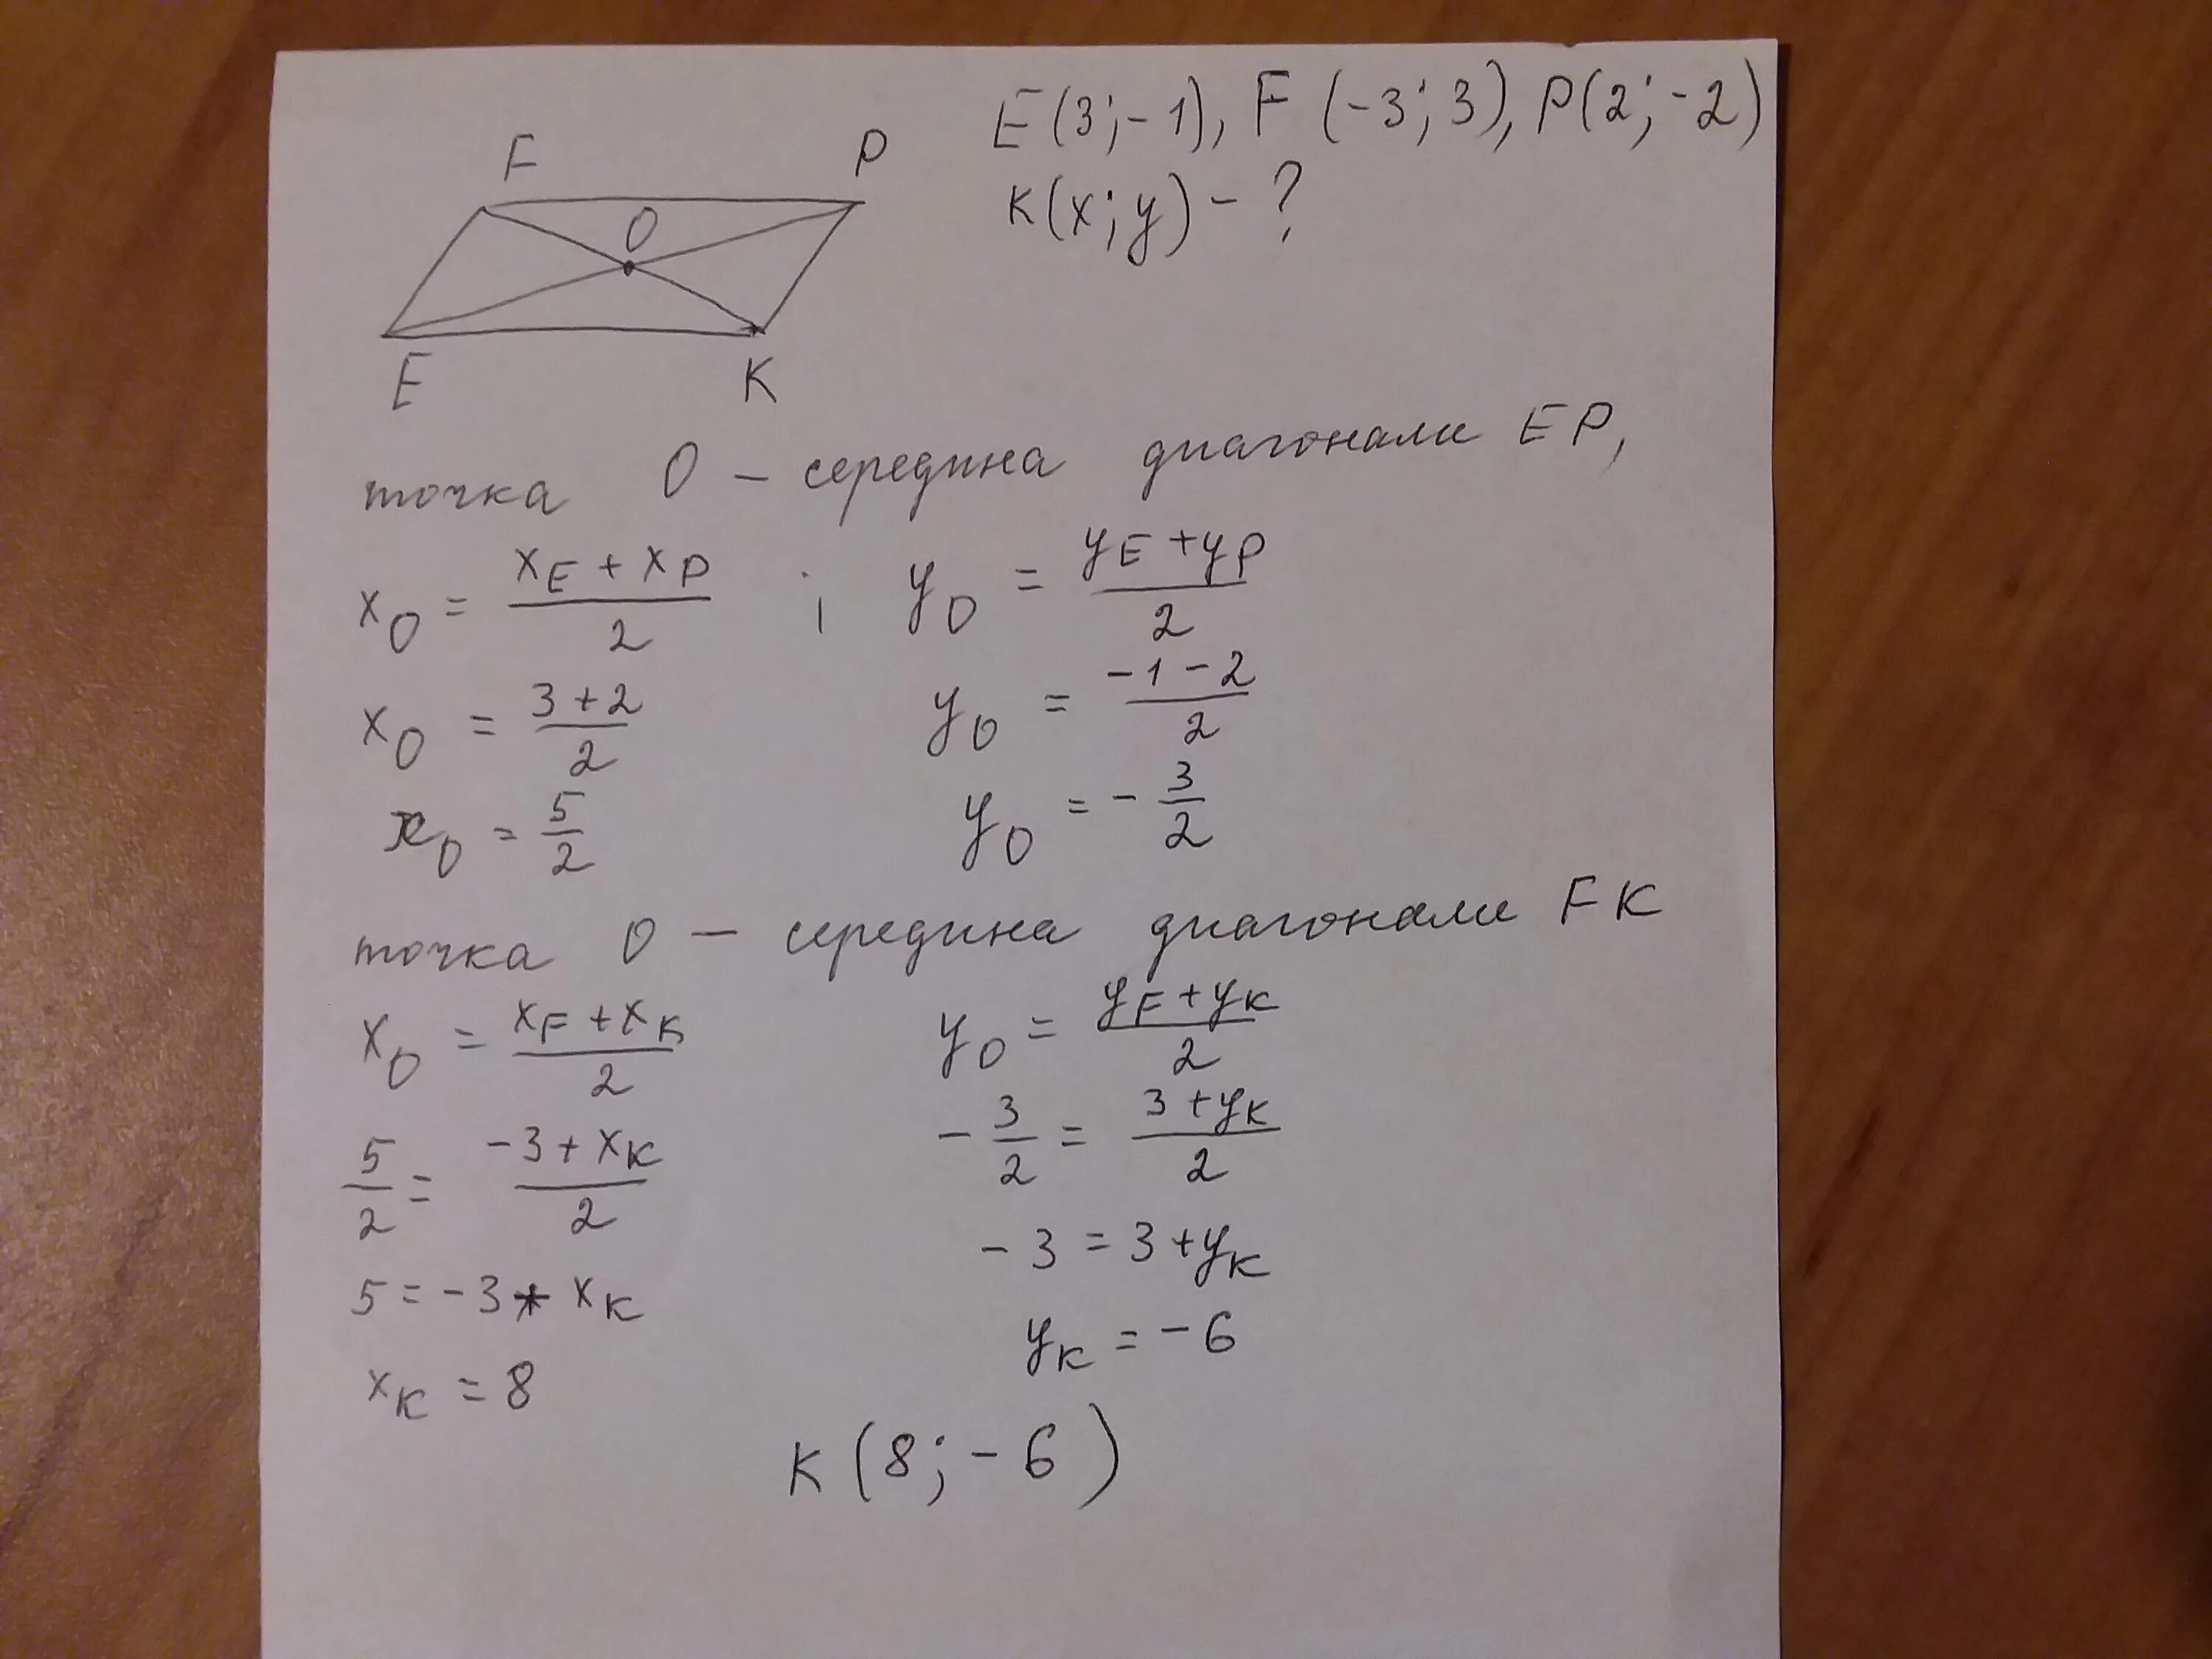 E(3;-1), F(-3;3), P(2;-2)
K(x;y) - ?
F P
O
E K
точка O – середина диагонали EP,
x_O = (x_E + x_P)/2 ; y_O = (y_E + y_P)/2
x_O = (3+2)/2 y_O = (-1-2)/2
x_O = 5/2 y_O = -3/2
точка O – середина диагонали FK
x_O = (x_F + x_K)/2 y_O = (y_F + y_K)/2
5/2 = (-3 + x_K)/2 -3/2 = (3 + y_K)/2
5 = -3 + x_K -3 = 3 + y_K
x_K = 8 y_K = -6
K(8;-6)